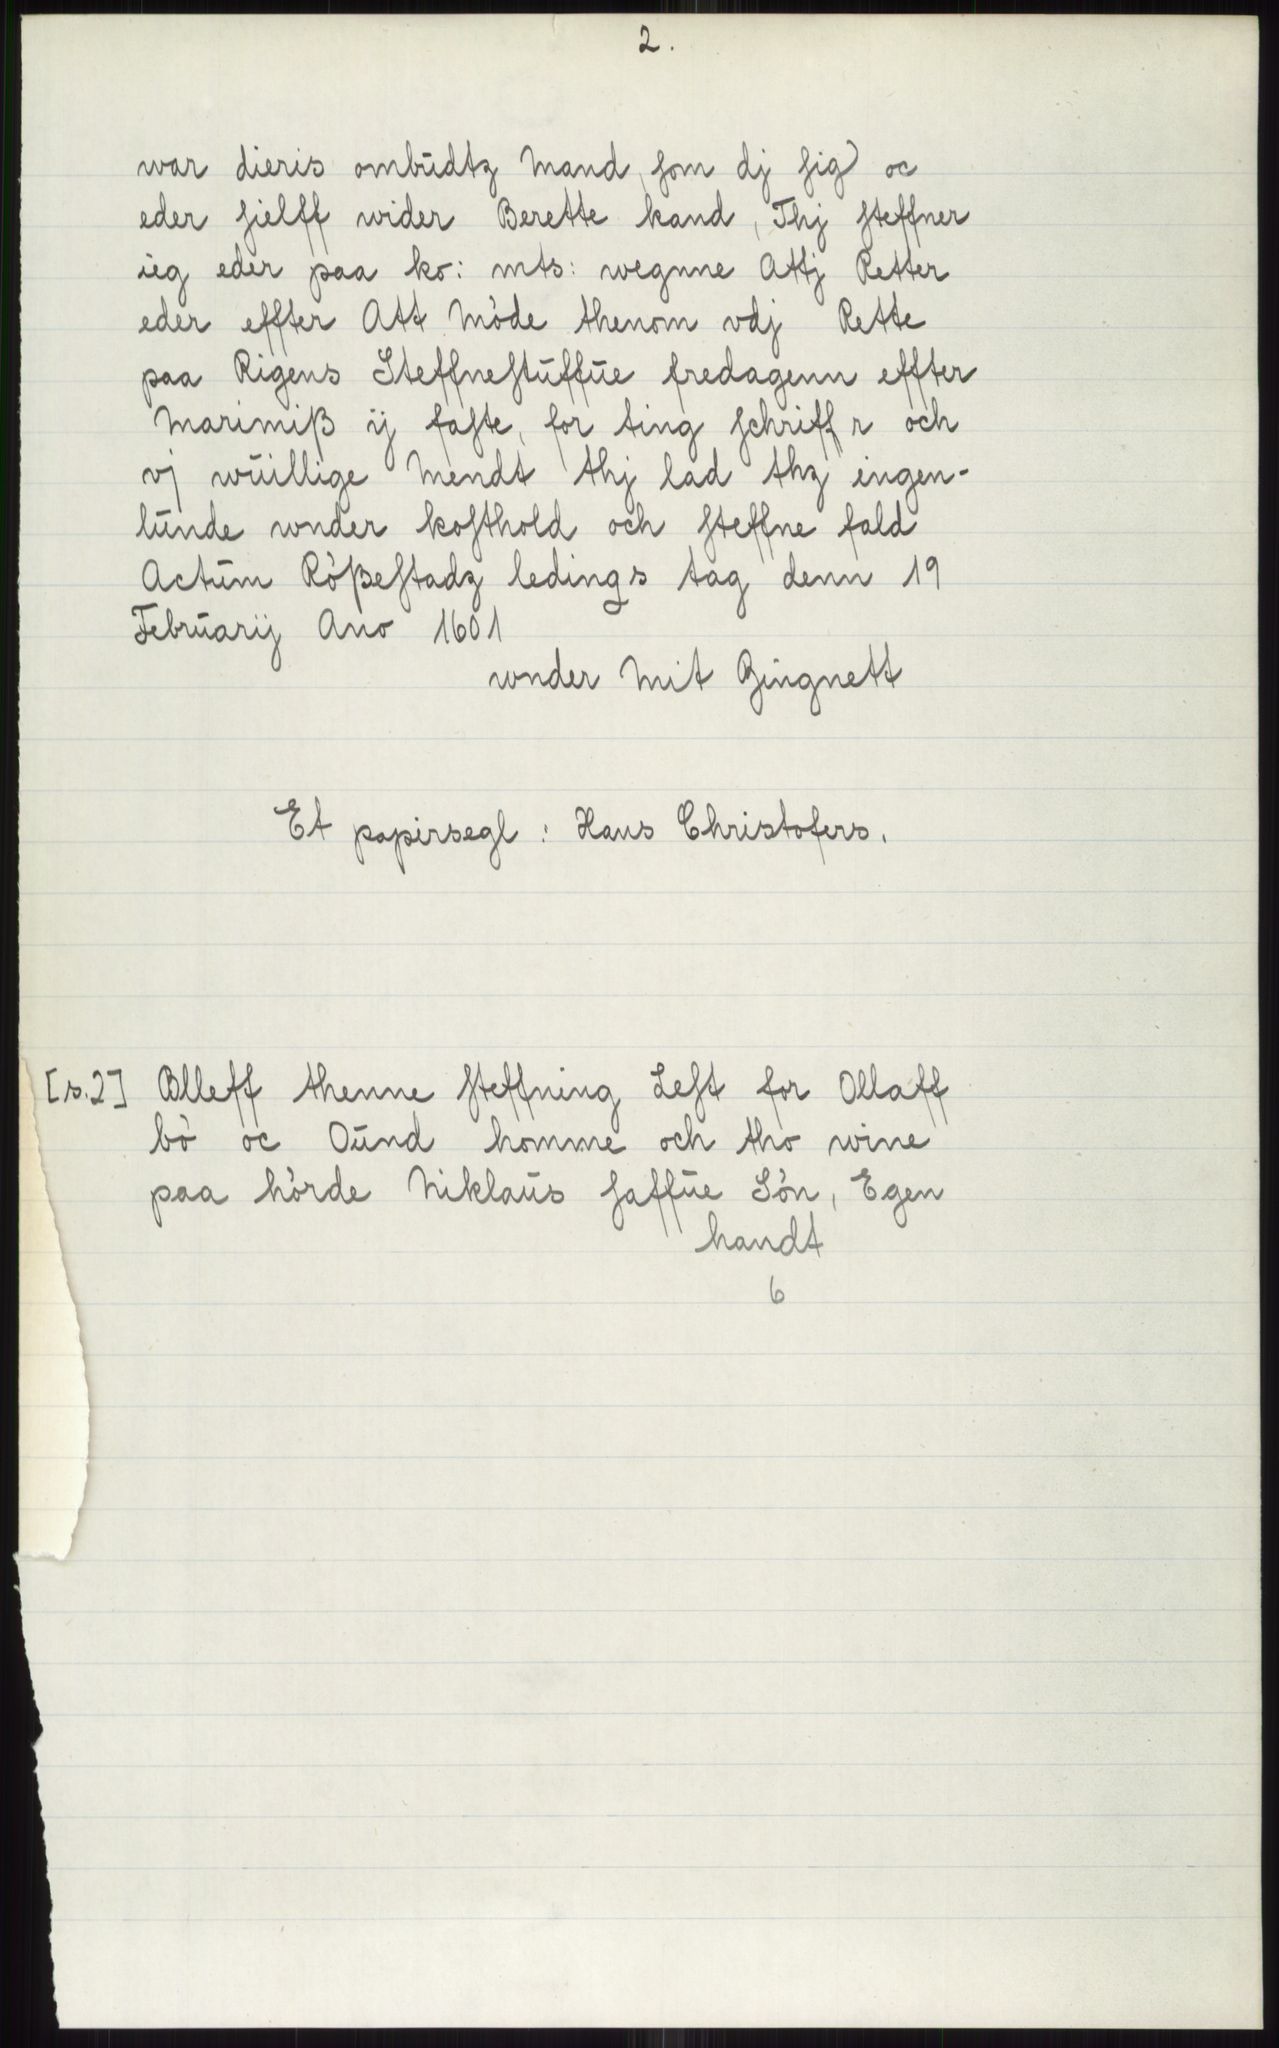 2.
war dieris ombŭdtz Mand, som dj sig oc
eder sielff wider Berette kand, Thj steffner
ieg eder paa ko: mts: wegnne Attj Retter
eder effter Att Móde thenom vdj Rette
paa Rigens Steffnestŭffŭe fredagenn effter
Marimiß ij faste, for ting schriff r och
vj wŭillige Mendt thj lad thz ingen-
lŭnde wnder kosthold och steffne fald
Actŭm Rößestadz ledings tag denn 19
Febrŭarij Ano 1601
wnder Mit Zingnett
Et papirsegl: Hans Christofers.
[s.2] Blleff thenne steffning Lest for Ollaff
bó oc Oŭnd homme och tho wine
paa hórde Niklaŭs saffŭe Són, Egen
handt
6